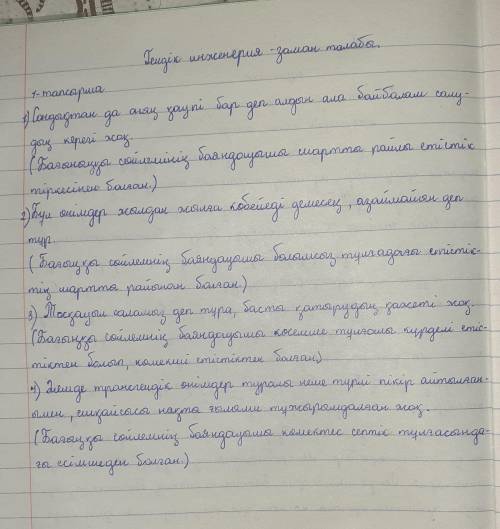 Гендік инженерия - заман талабы.
1-тапсырма
1) Сондықтан да оның қаупі бар деп алдын ала байбалам салу-
дың керегі жоқ.
(Бағыныңқы сөйлемінің баяндауышы шартты райлы етістік
тіркесінен болған.)
2) Бұл өнімдер жылдан жылға көбейеді демесең, азаймайын деп
тұр.
(Бағыңқы сөйлемнің баяндауышы болымсыз тұлғадағы етістік-
тің шартты райынан болған)
3) Тосқауыл саламыз деп тұра, басты қатырудың қажеті жоқ.
(Бағыңқы сөйлемнің баяндауышы көсемше тұлғалы күрделі етіс-
тіктен болып, көмекші етістіктен болған)
4) Әлемде трансгендік өнімдер туралы неше түрлі пікір айтылған-
ымен, ешқайсысы нақты ғылыми тұжырымдалған жоқ.
(Бағыңқы сөйлемнің баяндауышы көмектес септік тұлғасында-
ғы есімшеден болған.)